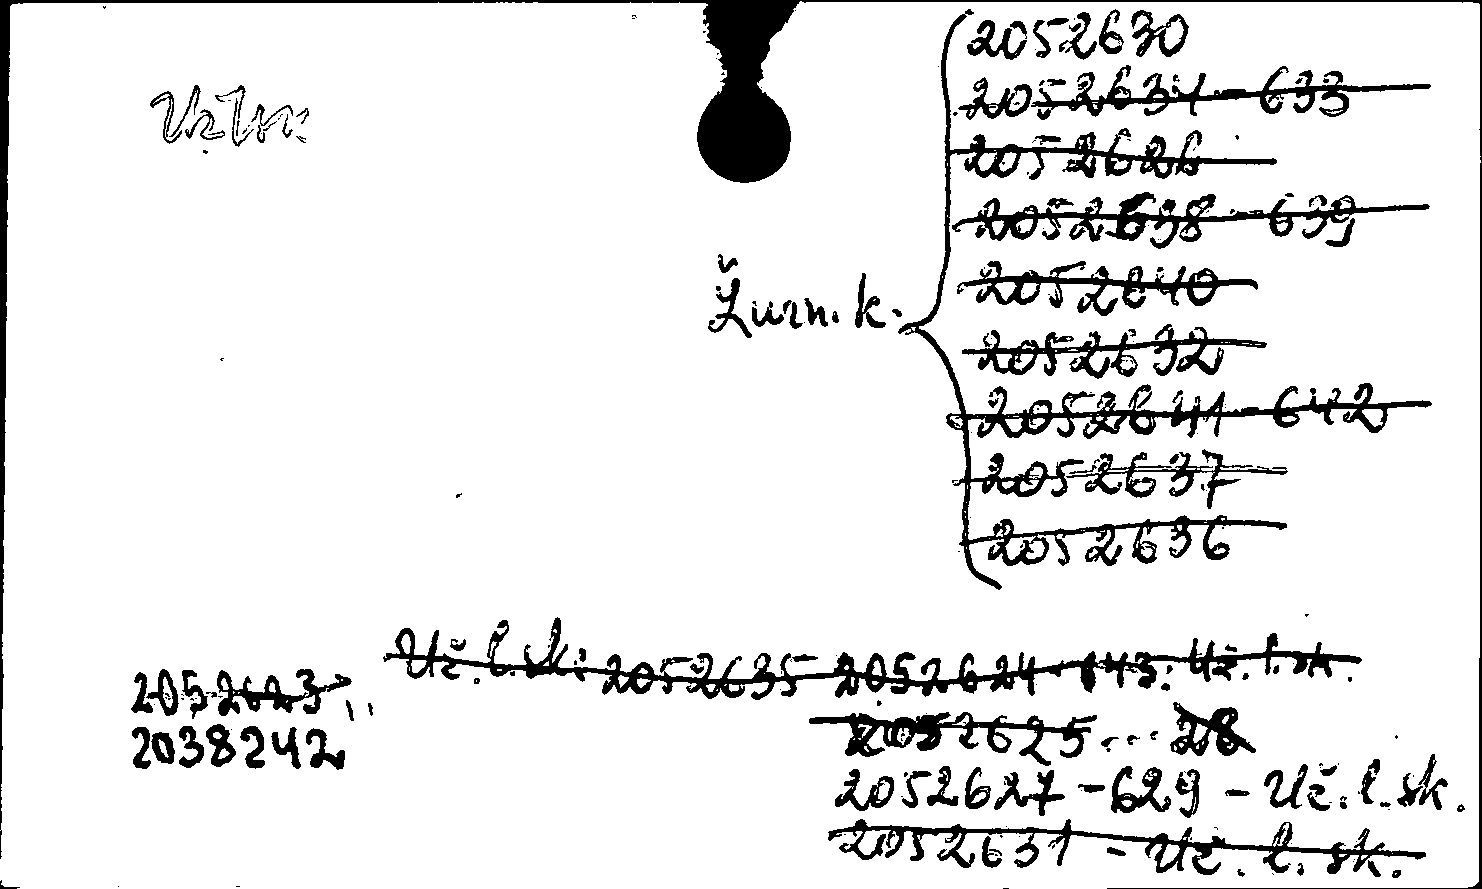 2052630
2052634-633
2052626
2052638-639
2052640
Žurn. k.
2052632
2052641-642
2052637
2052636
Uč. l. sk: 2052635 2052624-643: Uč. l. sk.
2052623
2052625... 28
2038242
2052627-629 - Uč. l. sk.
2052631 - Uč. l. sk.